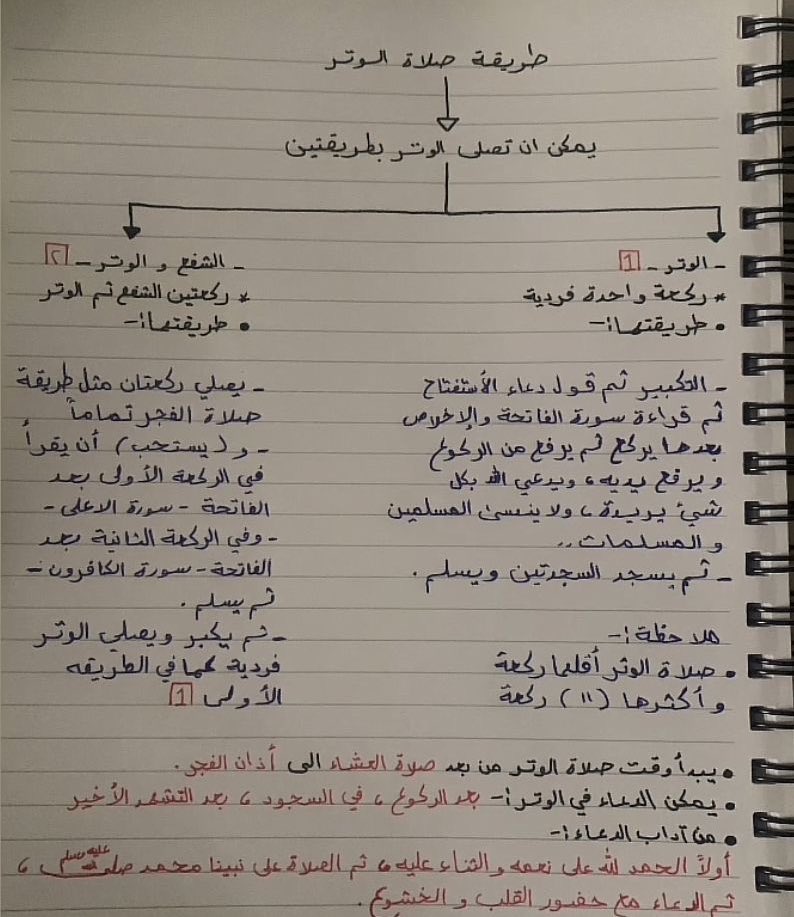 طريقة صلاة الوتر
يمكن ان تصلى الوتر بطريقتين
- الوتر - 1
* ركعة واحدة فردية
• طريقتها :-
- التكبير ثم قول دعاء الأستفتاح
ثم قراءة سورة الفاتحة والإخلاص
بعدها يركع ثم يرفع من الركوع
ويرفع يديه، ويدعي الله بكل
شئ يريدة، ولا ينسى المسلمين
والمسلمات،،
- ثم يسجد السجدتين ويسلم.
ملاحظة :-
• صلاة الوتر أقلها ركعة
وأكثرها (١١) ركعة
- الشفع و الوتر - ٢
* ركعتين الشفع ثم الوتر
• طريقتها :-
- يصلي ركعتان مثل طريقة
صلاة الفجر تماماً
- و (يستحب) أن يقرأ
في الركعة الأولى بعد
الفاتحة - سورة الاعلى -
- وفي الركعة الثانية بعد
الفاتحة - سورة الكافرون -
ثم يسلم.
- ثم يكبر ويصلي الوتر
فردية كما في الطريقه
الأولى 1
• يبدأ وقت صلاة الوتر من بعد صلاة العشاء الى أذان الفجر.
• يمكن الدعاء في الوتر :- بعد الركوع، في السجود، بعد التشهد الأخير
• من آداب الدعاء :-
أولاً الحمد لله على نعمه والثناء عليه، ثم الصلاة على نبينا محمد صلى الله عليه وسلم،
ثم الدعاء مع حضور القلب و الخشوع.